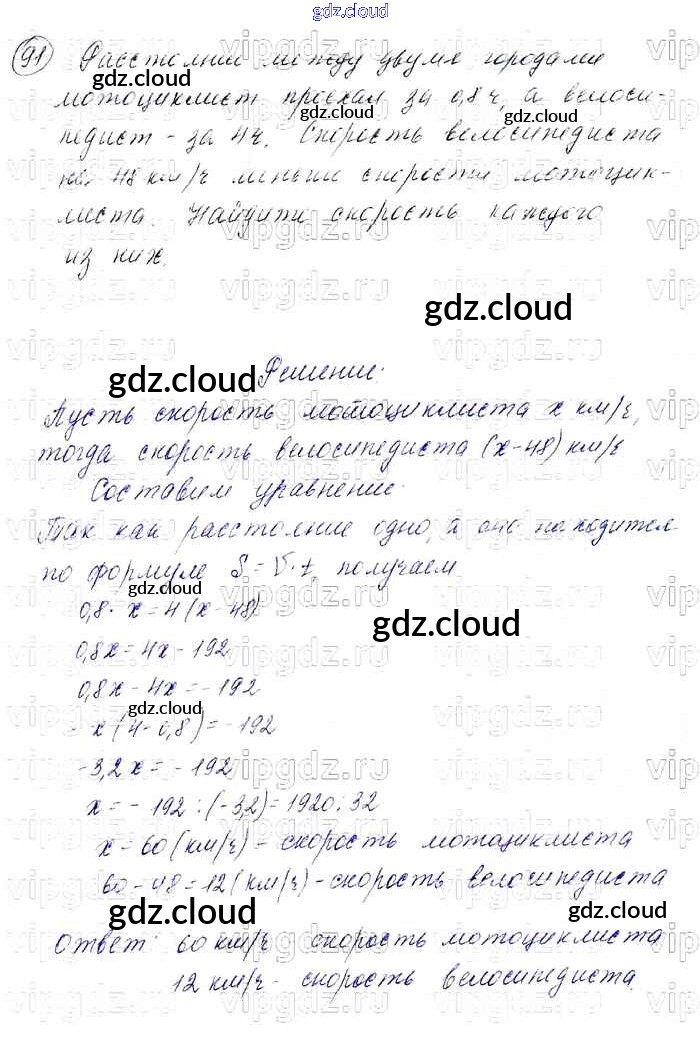 gdz.cloud
91 Расстояние между двумя городами
gdz.cloud
мотоциклист проехал за 0,8 ч, а велоси-
gdz.cloud gdz.cloud
педист - за 4 ч. Скорость велосипедиста
на 48 км/ч меньше скорости мотоцик-
листа. Найдите скорость каждого
из них.
vipgdz.ru
gdz.cloud
Решение:
gdz.cloud
Пусть скорость мотоциклиста x км/ч,
тогда скорость велосипедиста (x-48) км/ч
Составим уравнение.
Так как расстояние одно, а оно находится
по формуле S = V·t, получаем
gdz.cloud
0,8·x=4(x-48)
gdz.cloud
0,8x=4x-192
0,8x-4x=-192
gdz.cloud
-x(4-0,8)=-192
-3,2x=-192
x=-192:(-3,2)=1920:32
x=60(км/ч)-скорость мотоциклиста
60-48=12(км/ч)-скорость велосипедиста
gdz.cloud gdz.cloud
Ответ: 60 км/ч скорость мотоциклиста
12 км/ч- скорость велосипедиста.
gdz.cloud